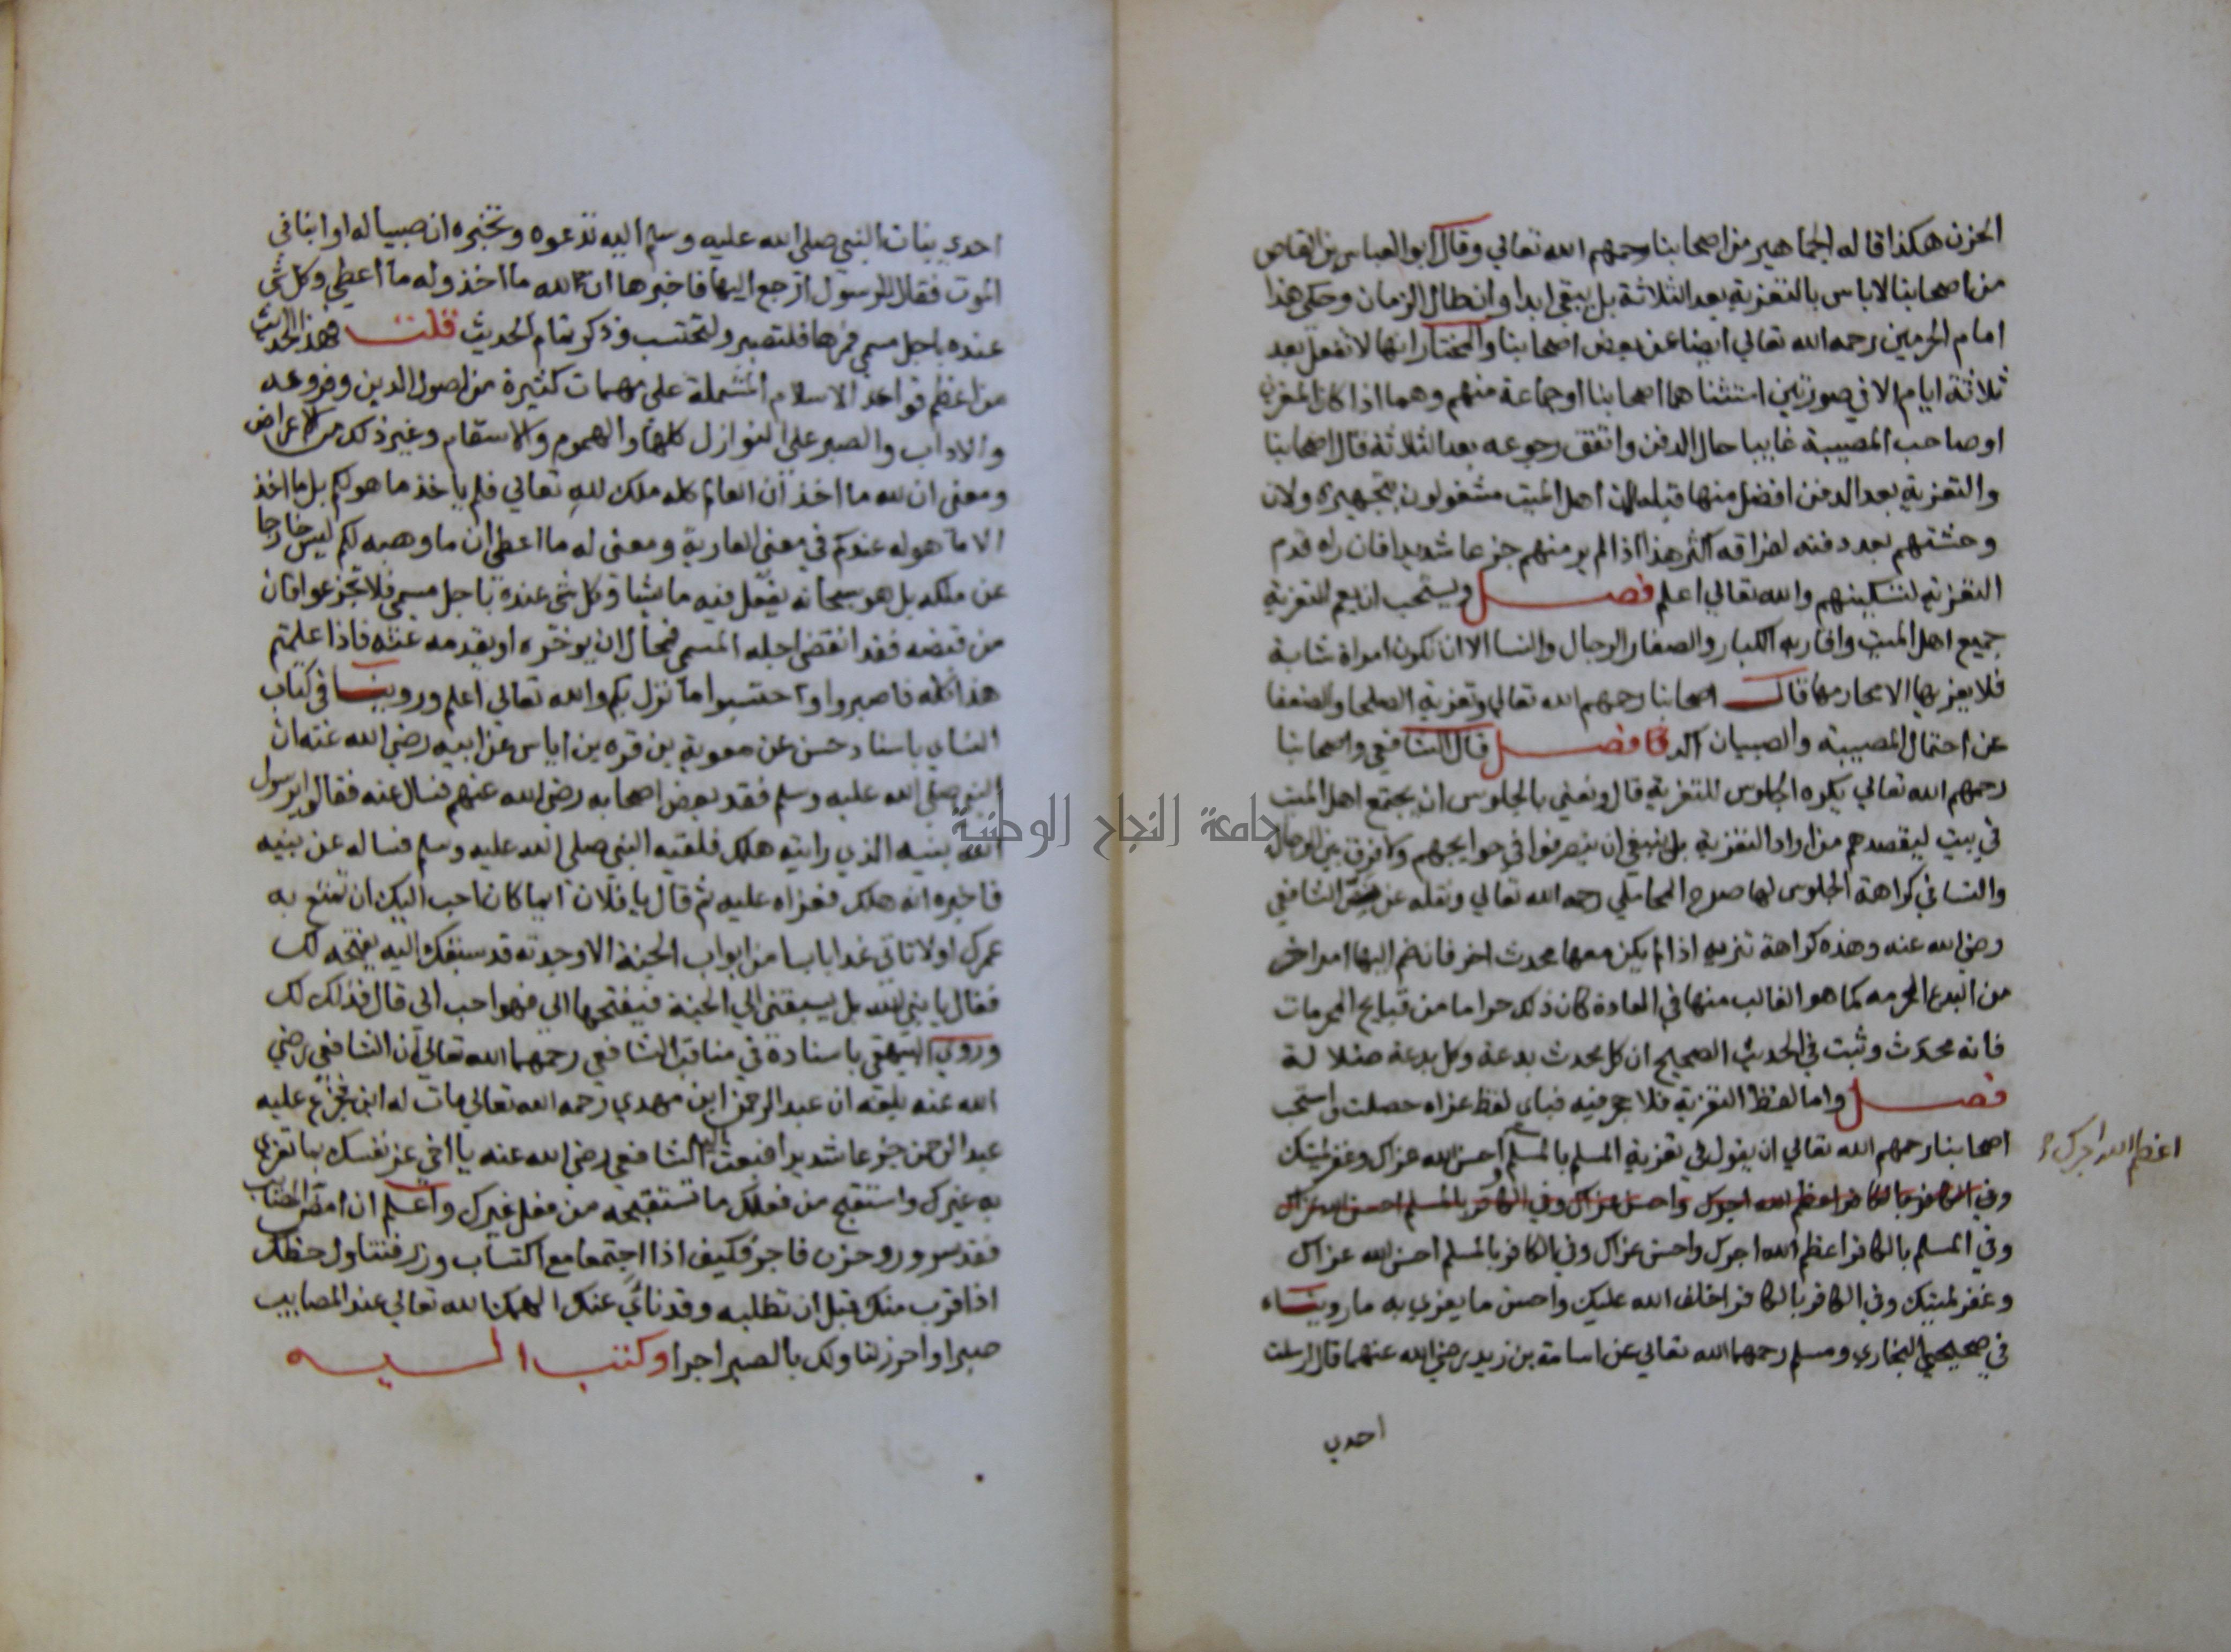 الحزن هكذا قاله الجماهير من اصحابنا رحمهم الله تعالي وقال ابو العباس بن القاص
من اصحابنا لاباس بالتعزية بعد الثلاثة بل يبقي ابدا وان طال الزمان وحكي هذا
امام الحرمين رحمه الله تعالي ايضا عن بعض اصحابنا والمختار انها لا تفعل بعد
ثلاثة ايام الا في صورتين استثناهما اصحابنا او جماعة منهم وهما اذا كان المعزي
او صاحب المصيبة غايبا حال الدفن واتفق رجوعه بعد الثلاثة قال اصحابنا
والتعزية بعد الدفن افضل منها قبله لان اهل الميت مشغولون بتجهيزه ولان
وحشتهم بعد دفنه لفراقه اكثر هذا اذا لم ير منهم جزعا شديدا فان راه قدم
التعزية لتسكينهم والله تعالي اعلم فصل ويستحب ان يعم التعزية
جميع اهل الميت واقاربه الكبار والصغار الرجال والنسا الا ان تكون امراة شابة
فلا يعزيها الا محارمها قال اصحابنا رحمهم الله تعالي وتعزية الصلحا والضعفا
عن احتمال المصيبة والصبيان اكد فصل قال الشافعي واصحابنا
رحمهم الله تعالي يكره الجلوس للتعزية قال ونعني بالجلوس ان يجتمع اهل الميت
في بيت ليقصدهم من اراد التعزية بل ينبغي ان ينصرفوا في حوايجهم ولا فرق بين الرجال
والنسا في كراهة الجلوس لها صرح المحاملي رحمه الله تعالي ونقله عن نص الشافعي
رضي الله عنه وهذه كراهة تنزيه اذا لم يكن معها محدث اخر فان ضم اليها امر اخر
من البدع المحرمه كما هو الغالب منها في العادة كان ذلك حراما من قبايح المحرمات
فانه محدث وثبت في الحديث الصحيح ان كل محدث بدعة وكل بدعة ضلالة
فصل واما لفظ التعزية فلا حجر فيه فباي لفظ عزاه حصلت واستحب
اصحابنا رحمهم الله تعالي ان يقول في تعزية المسلم بالمسلم احسن الله عزاك وغفر لميتك
اعظم الله اجرك و
وفي الكافر بالكافر اعظم الله اجرك واحسن عزاك وفي الكافر بالمسلم احسن الله عزاك
وفي المسلم بالكافر اعظم الله اجرك واحسن عزاك وفي الكافر بالمسلم احسن الله عزاك
وغفر لميتك وفي الكافر بالكافر اخلف الله عليك واحسن ما يعزي به ما روينا
في صحيحي البخاري ومسلم رحمهما الله تعالي عن اسامة بن زيد رضي الله عنهما قال ارسلت
احدي
احدي بنات النبي صلى الله عليه وسلم اليه تدعوه وتخبره ان صبيا له او ابنا في
الموت فقال للرسول ارجع اليها فاخبرها ان لله ما اخذ وله ما اعطي وكل شي
عنده باجل مسمي فمرها فلتصبر ولتحتسب وذكر تمام الحديث قلت فهذا الحديث
من اعظم قواعد الاسلام المشملة على مهمات كثيرة من اصول الدين وفروعه
والاداب والصبر على النوازل كلها والهموم والاسقام وغير ذلك من الاعراض
ومعنى ان لله ما اخذ ان العالم كله ملك لله تعالي فلم ياخذ ما هو لكم بل ما اخذ
الا ما هو له عندكم في معنى العارية ومعنى له ما اعطي ان ما وهبه لكم ليس خارجا
عن ملكه بل هو سبحانه يفعل فيه ما يشا وكل شي عنده باجل مسمي فلا تجزعوا فان
من قبضه فقد انقضى اجله المسمي فمحال ان يوخره او يقدمه عنه فاذا علمتم
هذا كله فاصبروا واحتسبوا ما نزل بكم والله تعالي اعلم وروينا في كتاب
النساي باسناد حسن عن معوية بن قره بن اياس عن ابيه رضي الله عنه ان
النبي صلى الله عليه وسلم فقد بعض اصحابه رضي الله عنهم فسال عنه فقالوا يا رسول
الله بنيه الذي رايته هلك فلقيه النبي صلى الله عليه وسلم فساله عن بنيه
فاخبره انه هلك فعزاه عليه ثم قال يا فلان ايما كان احب اليك ان تمتع به
عمرك او لا تاتي غدا بابا من ابواب الجنة الا وجدته قد سبقك اليه يفتحه لك
فقال يا نبي الله بل يسبقني الي الجنة فيفتحها الي فهو احب الى قال فذلك لك
وروي البيهقي باسناده في مناقب الشافعي رحمهما الله تعالي ان الشافعي رضي
الله عنه بلغه ان عبد الرحمن ابن مهدي رحمه الله تعالي مات له ابن فجزع عليه
عبد الرحمن جزعا شديدا فبعث اليه الشافعي رضي الله عنه يا اخي عز نفسك بما تعزي
به غيرك واستقبح من فعلك ما تستقبحه من فعل غيرك واعلم ان امض المصايب
فقد سرور وحزن فاجر فكيف اذا اجتمعا مع اكتساب وزر فتناول حظك
اذا قرب منك قبل ان تطلبه وقد ناي عنك الهمك الله تعالي عند المصايب
صبرا واحرز لنا ولك بالصبر اجرا وكتب اليه
جامعة النجاح الوطنية